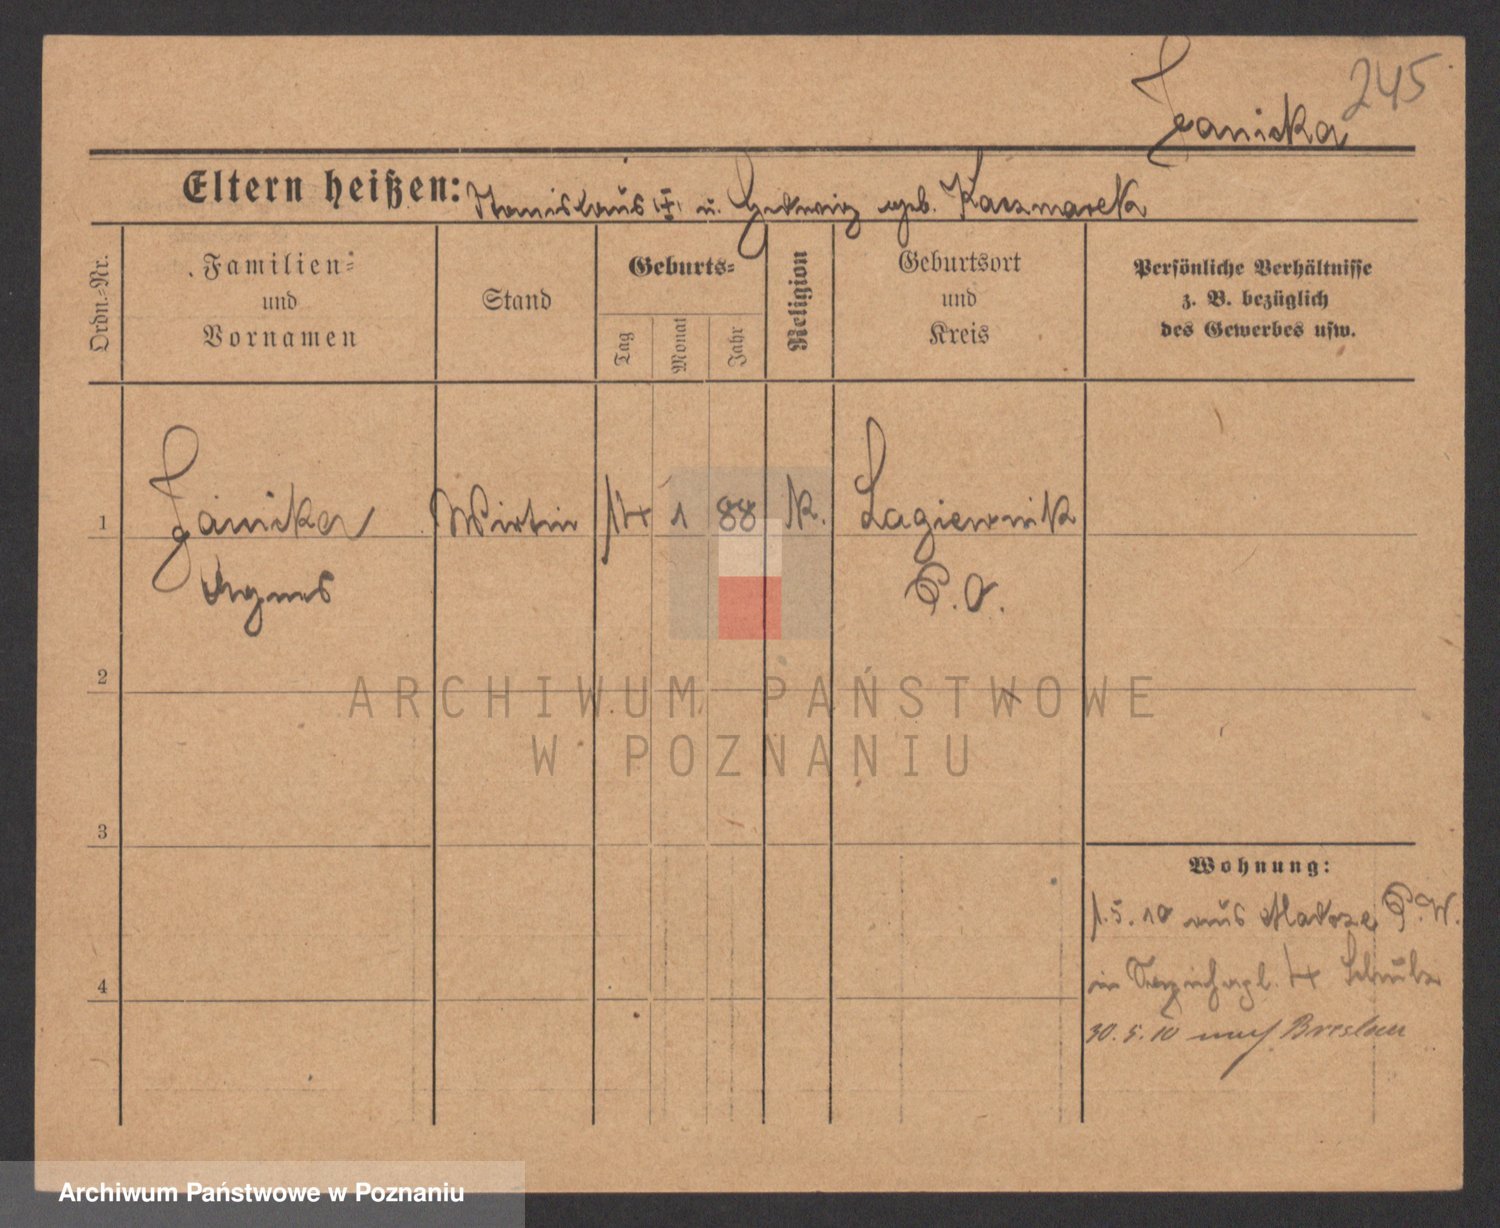 245
Janicka
Eltern heißen: Stanislaus u. Hedwig geb. Kaczmarek
Ordn.-Nr.
Familien-
und
Vornamen
Stand
Geburts-
Tag
Monat
Jahr
Religion
Geburtsort
und
Kreis
Persönliche Verhältnisse
z. B. bezüglich
des Gewerbes usw.
1 Janicka Wirtin 14 1 88 K. Lagiewnik
Agnes P. O.
ARCHIWUM PAŃSTWOWE
W POZNANIU
2
3
4
Wohnung:
1.5.10 aus P.W.
in 4
30.5.10 nach Breslau
Archiwum Państwowe w Poznaniu